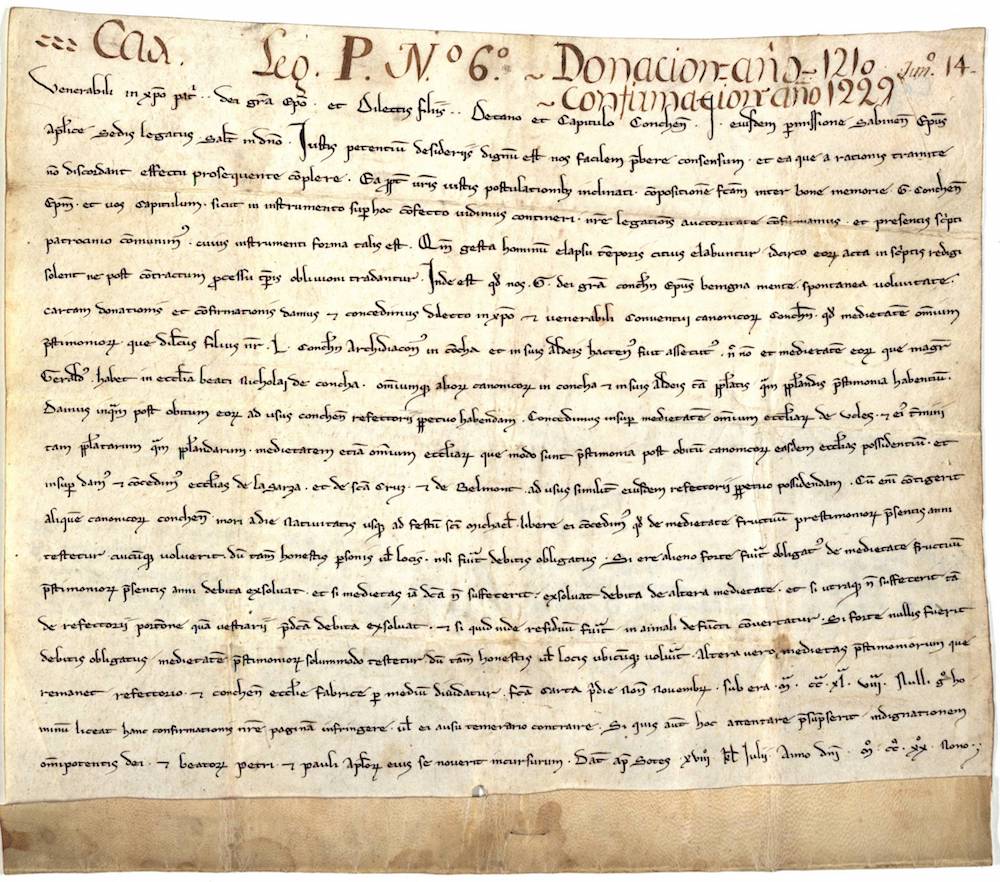 Caa. Leg. P. N.º 6.º ~ Donacion año 1210 Jun.º 14
~ Confirmacion año 1229
Venerabili in xp̄o pat̄ .. dei gr̄a Ep̄o . et Dilectis filiis .. Decano et Capitulo Conchen̄ . J . eiusdem p̄missione Sabinen̄ Ep̄us
Ap̄lice Sedis legatus Salt̄ in dn̄o . Justis petentiū desideriis dignū est nos facilem p̄bere consensum . et ea que a rationis tramite
nō discordant effectu prosequente cōplere . Ea pp̄t ur̄is iustis postulationib; inclinati . cōpositionē fc̄am inter bone memorie . G . Conchen̄
Ep̄m . et uos Capitulum . sicut in instrumento sup hoc cōfecto uidimus contineri . nr̄e legationis auctoritate cōfirmamus . et presentis sc̄pti
patrocinio cōmunim⁹ . cuius instrumenti forma talis est . Qm̄ gesta hominū elapsu tēporis citius elabuntur idcirco eoꝝ acta in sc̄ptis redigi
solent ne post cōtractum ꝓcessu tp̄ris obliuioni tradantur . Inde est qd̄ nos . G . dei gr̄a conchn̄ Ep̄us benigna mente . spontanea uoluntate .
cartam donationis et cōfirmationis damus ⁊ concedimus dilecto in xp̄o ⁊ uenerabili Conuentui canonicoꝝ Conchn̄ . qd̄ medietatē om̄ium
p̄stimonioꝝ . que dilc̄us filius nr̄ . L . Conchn̄ Archidiacon⁹ in cōcha et in suis aldeis hacten⁹ fuit assecut⁹ . n̄ nō et medietatē eoꝝ que magr̄
Gerald⁹ . habet in eccl̄ia beati Nicholaj de concha . om̄iumq; alioꝝ canonicoꝝ in concha ⁊ in suis aldeis tā pp̄latis qm̄ pp̄landis p̄stimonia habentiū .
Damus inqm̄ post obitum eoꝝ ad usus conchen̄ refectorii ꝑpetuo habendam . Concedimus insuper medietatē omnium eccl̄iaꝝ de Ucles . ⁊ ei⁹ t̄mini
tam pp̄latarum qm̄ pp̄landarum . medietatem etiā om̄ium eccl̄iaꝝ que modo sunt p̄stimonia post obitū canonicoꝝ easdem eccl̄ias possidentiū . et
insup dam⁹ ⁊ cōcedim⁹ eccl̄ias de la Sarza . et de sc̄a Cruz . ⁊ de Belmont . ad usus similit̄ eiusdem refectorii ꝑpetuo possidendam . Cū em̄ cōtigerit
aliquē canonicoꝝ conchen̄ . mori a die Natiuitatis usq; ad festū sc̄i michael̄ . libere ei cōcedim⁹ qd̄ de medietate fructuū prestimonioꝝ p̄sentis anni
testetur cuicūq; uoluerit . dū tam̄ honestis ꝑsonis ul̄ locis . nisi fuīt debitis obligatus . Si ere alieno forte fuīt obligat⁹ de medietate fructuū
p̄stimonioꝝ p̄sentis anni debita exsoluat . et si medietas iā dc̄a n̄ suffecerit . exsoluat debita de altera medietate . et si utraq; n̄ suffecerit tā
de refectorii portōne quā uestiarii p̄dc̄a debita exsoluat . ⁊ si quid inde residuū fuīt in aīmali defūcti cōuertatur . Si forte nullis fuerit
debitis obligatus medietatē p̄stimonioꝝ solummodo testetur dū tam̄ honestis ul̄ locis ubicūq; uoluīt . Altera uero medietas p̄stimoniorum que
remanet refectorio . ⁊ conchen̄ eccl̄ie fabrice p mediū diuidatur . Fc̄a Carta p̄die Non̄ Nouembꝝ . sub era . M̄ . CC̄ . XL̄ . VIII . Nulli g̊ ho
minū liceat hanc confirmationis nr̄e paginā infringere . ul̄ ei ausu temerario contraire . Si quis aut̄ hoc attentare p̄sūpserit indignationem
om̄ipotentis dei . ⁊ beatoꝝ petri . ⁊ pauli Ap̄loꝝ eius se nouerit incursurum . Dat̄ ap̄ Sotos XVIII kl̄ Julii . Anno dn̄i . M̊ . CC̊ . XX̊ . Nono .